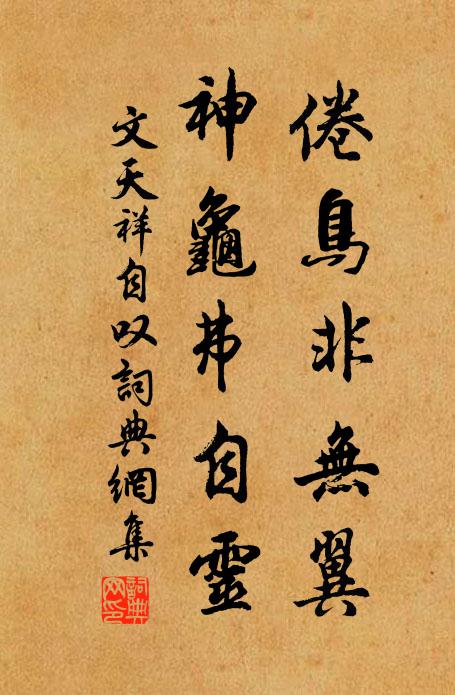 倦鳥非無翼
神龜弗自靈
文天祥自叹詞典網集
詞典網印